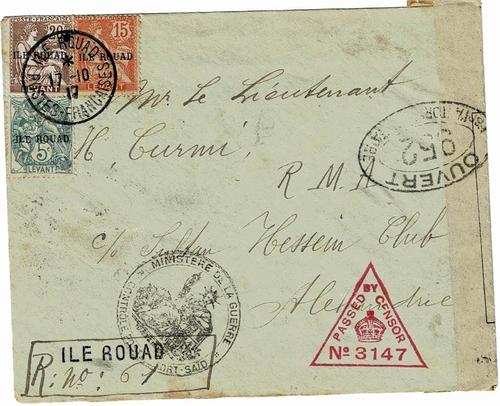 20 POSTE FRANÇAISE 15
ILE ROUAD ILE ROUAD
ILE ROUAD
17-10
17
POSTES-FRANÇAISES
ILE ROUAD
5
LEVANT
Mr. Le Lieutenant
H. Curmi,
R. M. A
c/o Sultan
Hessein Club
Alexandrie
OUVERT
952
MINISTERE DE LA GUERRE
CONTROLE
PORT-SAID
PASSED BY CENSOR
No 3147
ILE ROUAD
R: no: 61